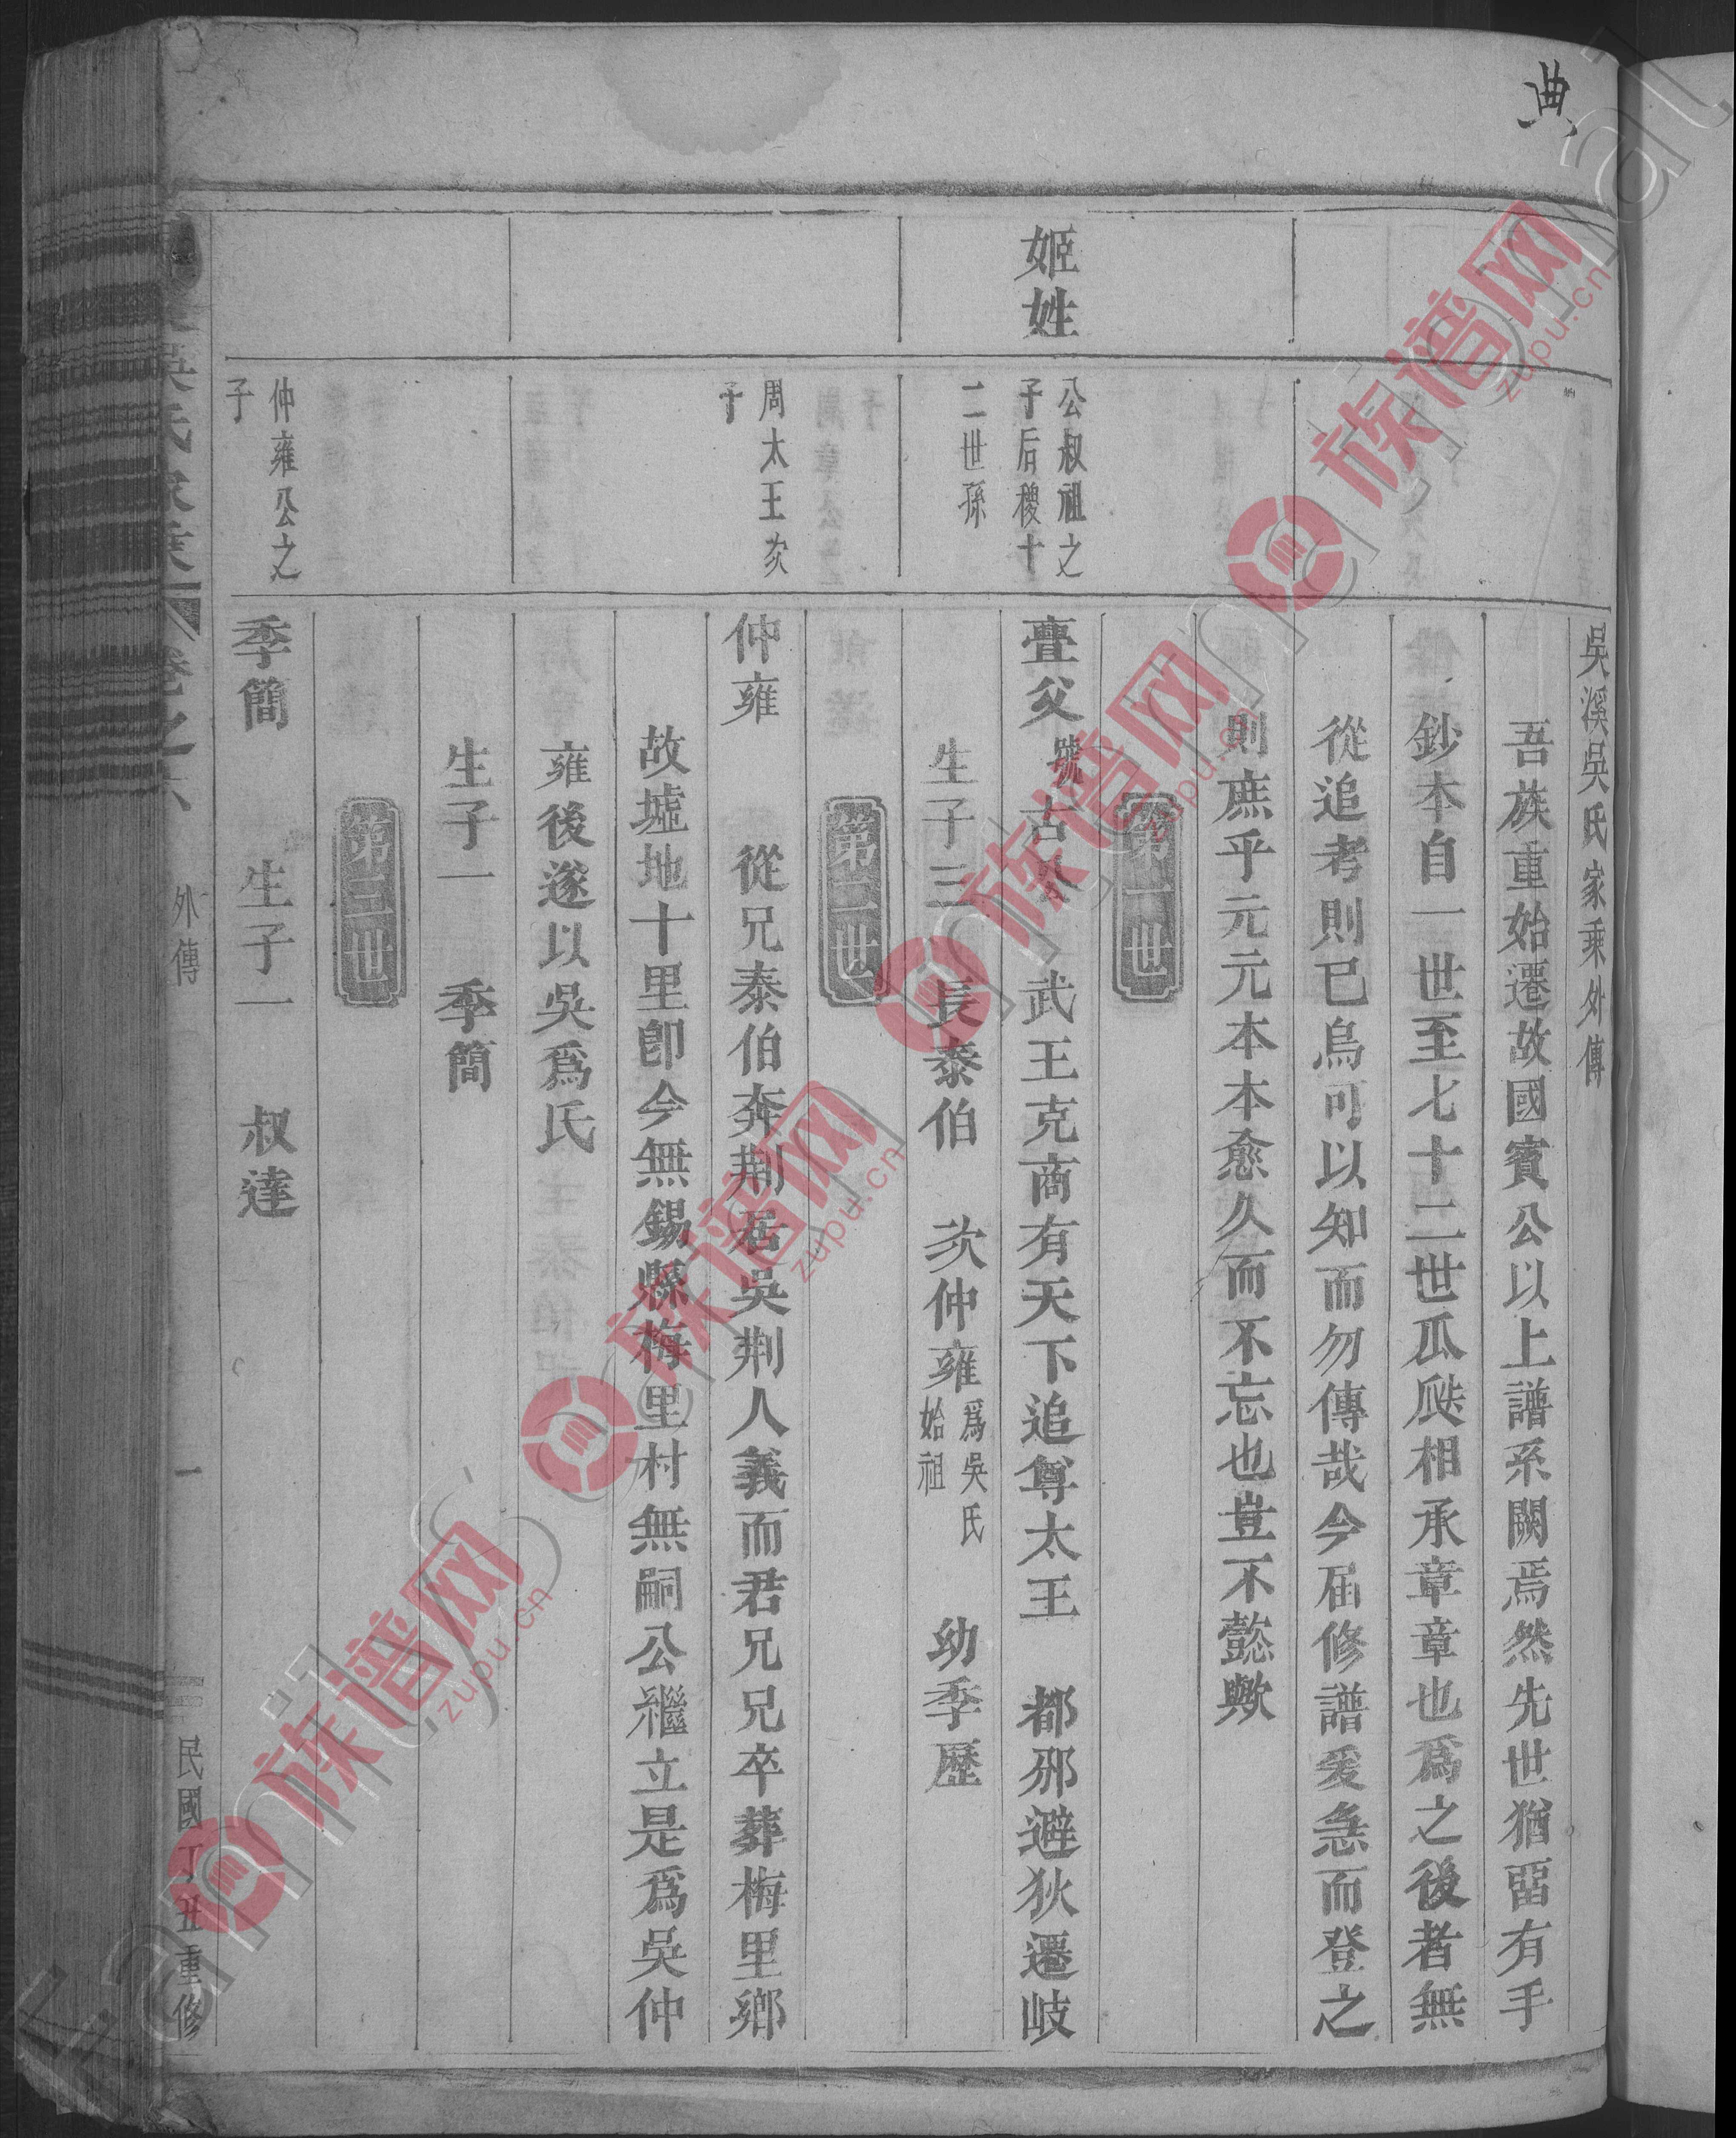 典
吳溪吳氏家乘外傳
吾族重始遷故國賓公以上譜系闕焉然先世猶畱有手
鈔本自一世至七十二世瓜瓞相承章章也爲之後者無
從追考則已烏可以知而勿傳哉今届修譜爰急而登之
則庶乎元元本本愈久而不忘也豈不懿歟
第一世
姬姓
公叔祖之
子后稷十
二世孫
亶父 號古公 武王克商有天下追尊太王 都邠避狄遷岐
生子三 長泰伯 次仲雍 爲吳氏始祖 幼季歷
第二世
周太王次
子
仲雍 從兄泰伯奔荆居吳荆人義而君兄兄卒葬梅里鄉
故墟地十里卽今無錫縣梅里村無嗣公繼立是爲吳仲
雍後遂以吳爲氏
生子一 季簡
第三世
仲雍公之
子
季簡 生子一 叔達
吳氏家乘 卷之六
外傳
一
民國丁丑重修
族谱网
zupu.cn
族谱网
zupu.cn
族谱网
zupu.cn
族谱网
zupu.cn